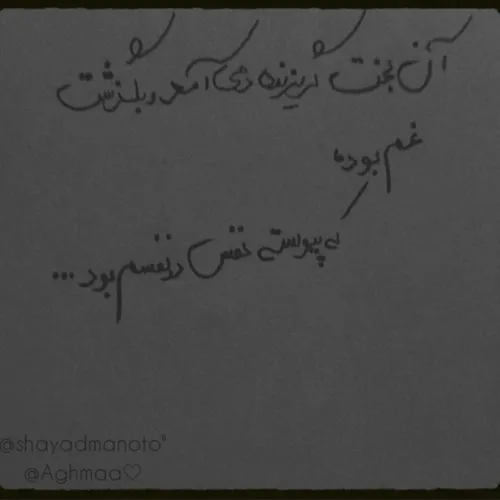 آن بخت گریزنده دمی آمد و بگذشت
غم بود
که پیوسته نفس در نفسم بود ...
@shayadmanoto"
@Aghmaa♡